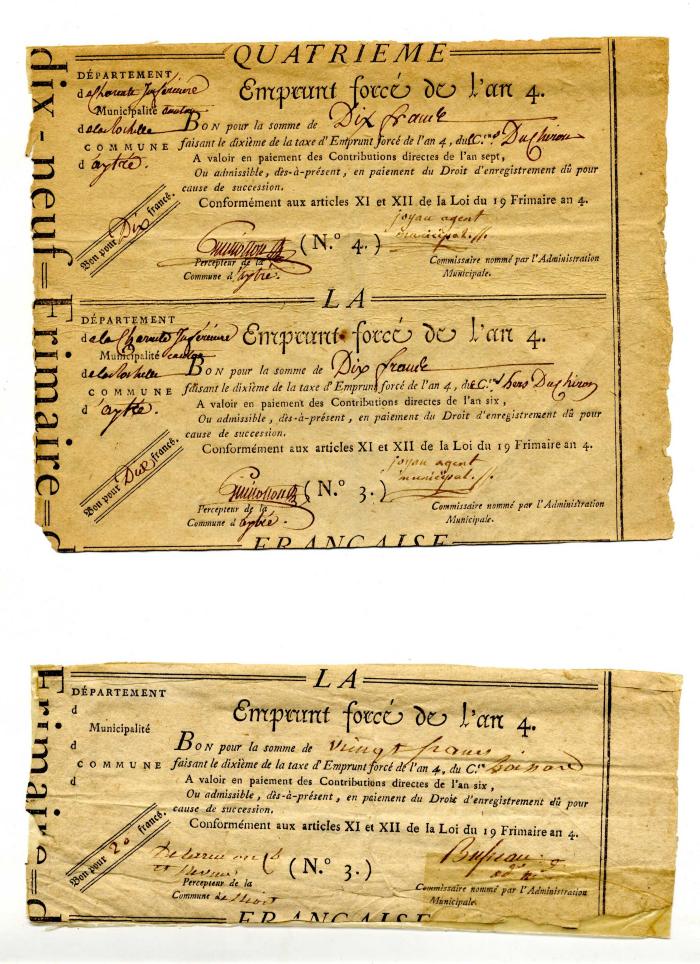 QUATRIEME
dix-neuf=Frimaire=d
DÉPARTEMENT
de Charente Inférieure
Municipalité canton
de la Rochelle
COMMUNE
d'aytré.
Emprunt forcé de l'an 4.
BON pour la somme de Dix francs
faisant le dixième de la taxe d'Emprunt forcé de l'an 4, du C.en DuChiron
A valoir en paiement des Contributions directes de l'an sept,
Ou admissible, dès-à-présent, en paiement du Droit d'enregistrement dû pour
cause de succession.
Conformément aux articles XI et XII de la Loi du 19 Frimaire an 4.
Bon pour Dix francs.
(N.° 4.)
joyau agent
municipal.
Percepteur de la
Commune d'aytré.
Commissaire nommé par l'Administration
Municipale.
LA
DÉPARTEMENT
de la Charente Inférieure
Municipalité canton
de la Rochelle
COMMUNE
d'aytré.
Emprunt forcé de l'an 4.
BON pour la somme de Dix francs
faisant le dixième de la taxe d'Emprunt forcé de l'an 4, du C.en hers DuChiron
A valoir en paiement des Contributions directes de l'an six,
Ou admissible, dès-à-présent, en paiement du Droit d'enregistrement dû pour
cause de succession.
Conformément aux articles XI et XII de la Loi du 19 Frimaire an 4.
Bon pour Dix francs.
(N.° 3.)
joyau agent
municipal.
Percepteur de la
Commune d'aytré.
Commissaire nommé par l'Administration
Municipale.
FRANCAISE
LA
Frimaire=d
DÉPARTEMENT
d
Municipalité
d
COMMUNE
d
Emprunt forcé de l'an 4.
BON pour la somme de vingt francs
faisant le dixième de la taxe d'Emprunt forcé de l'an 4, du C.en
A valoir en paiement des Contributions directes de l'an six,
Ou admissible, dès-à-présent, en paiement du Droit d'enregistrement dû pour
cause de succession.
Conformément aux articles XI et XII de la Loi du 19 Frimaire an 4.
Bon pour 20 francs.
(N.° 3.)
Percepteur de la
Commune de Niort
Commissaire nommé par l'Administration
Municipale.
FRANCAISE